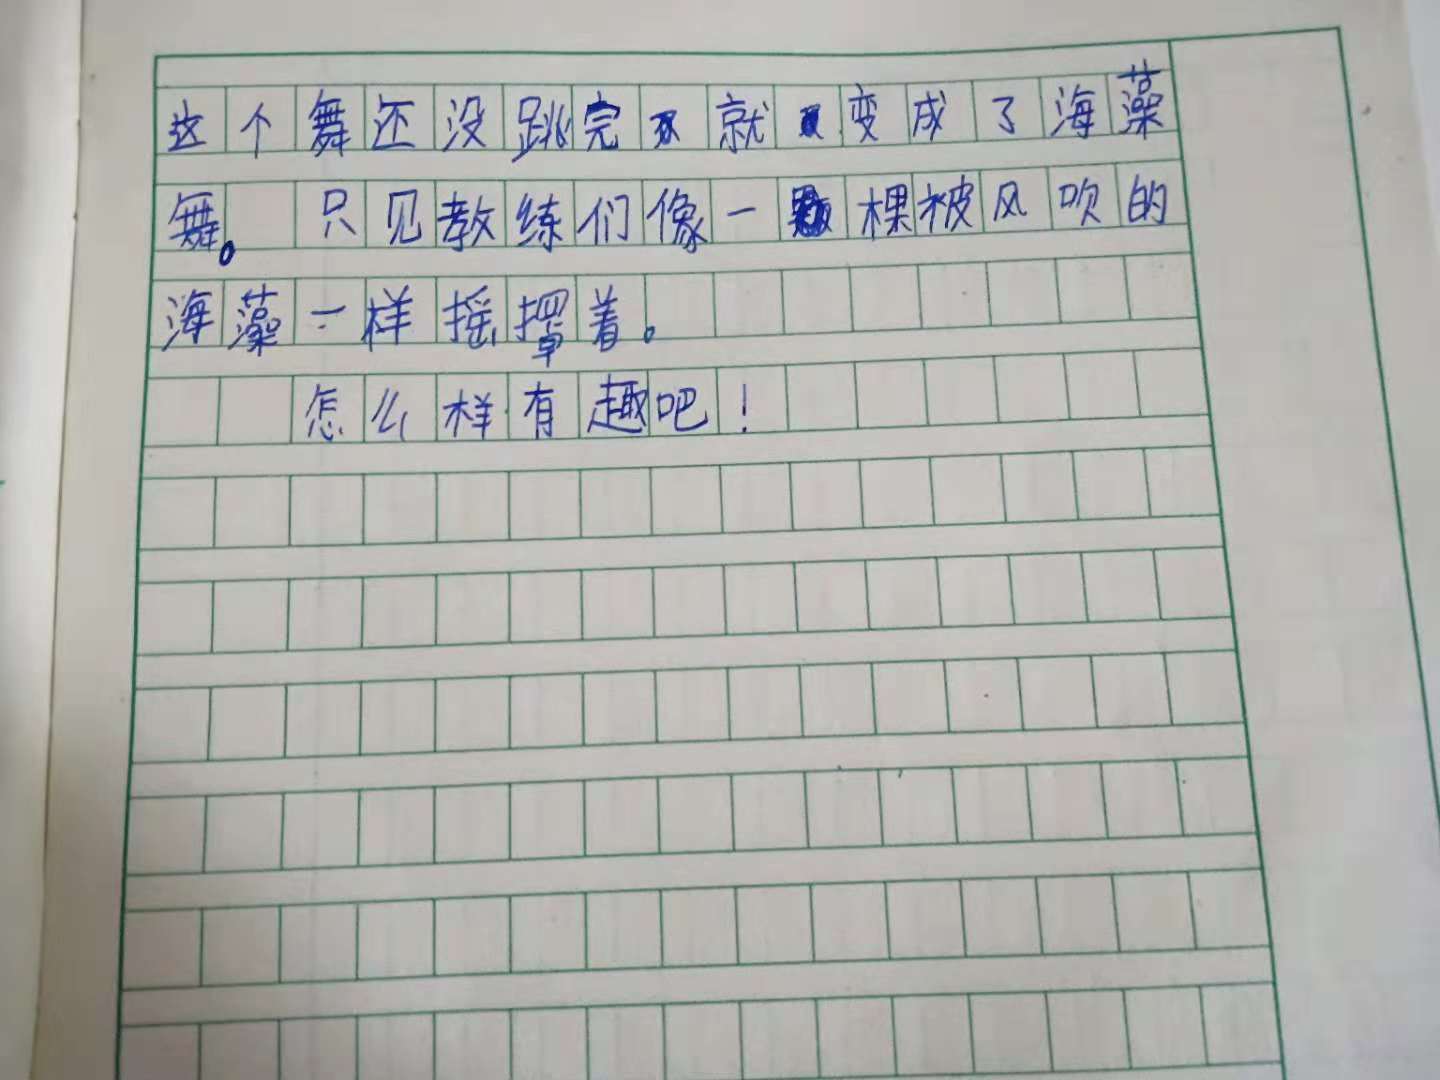 这个舞还没跳完就变成了海藻
舞。只见教练们像一棵被风吹的
海藻一样摇摆着。
怎么样有趣吧！